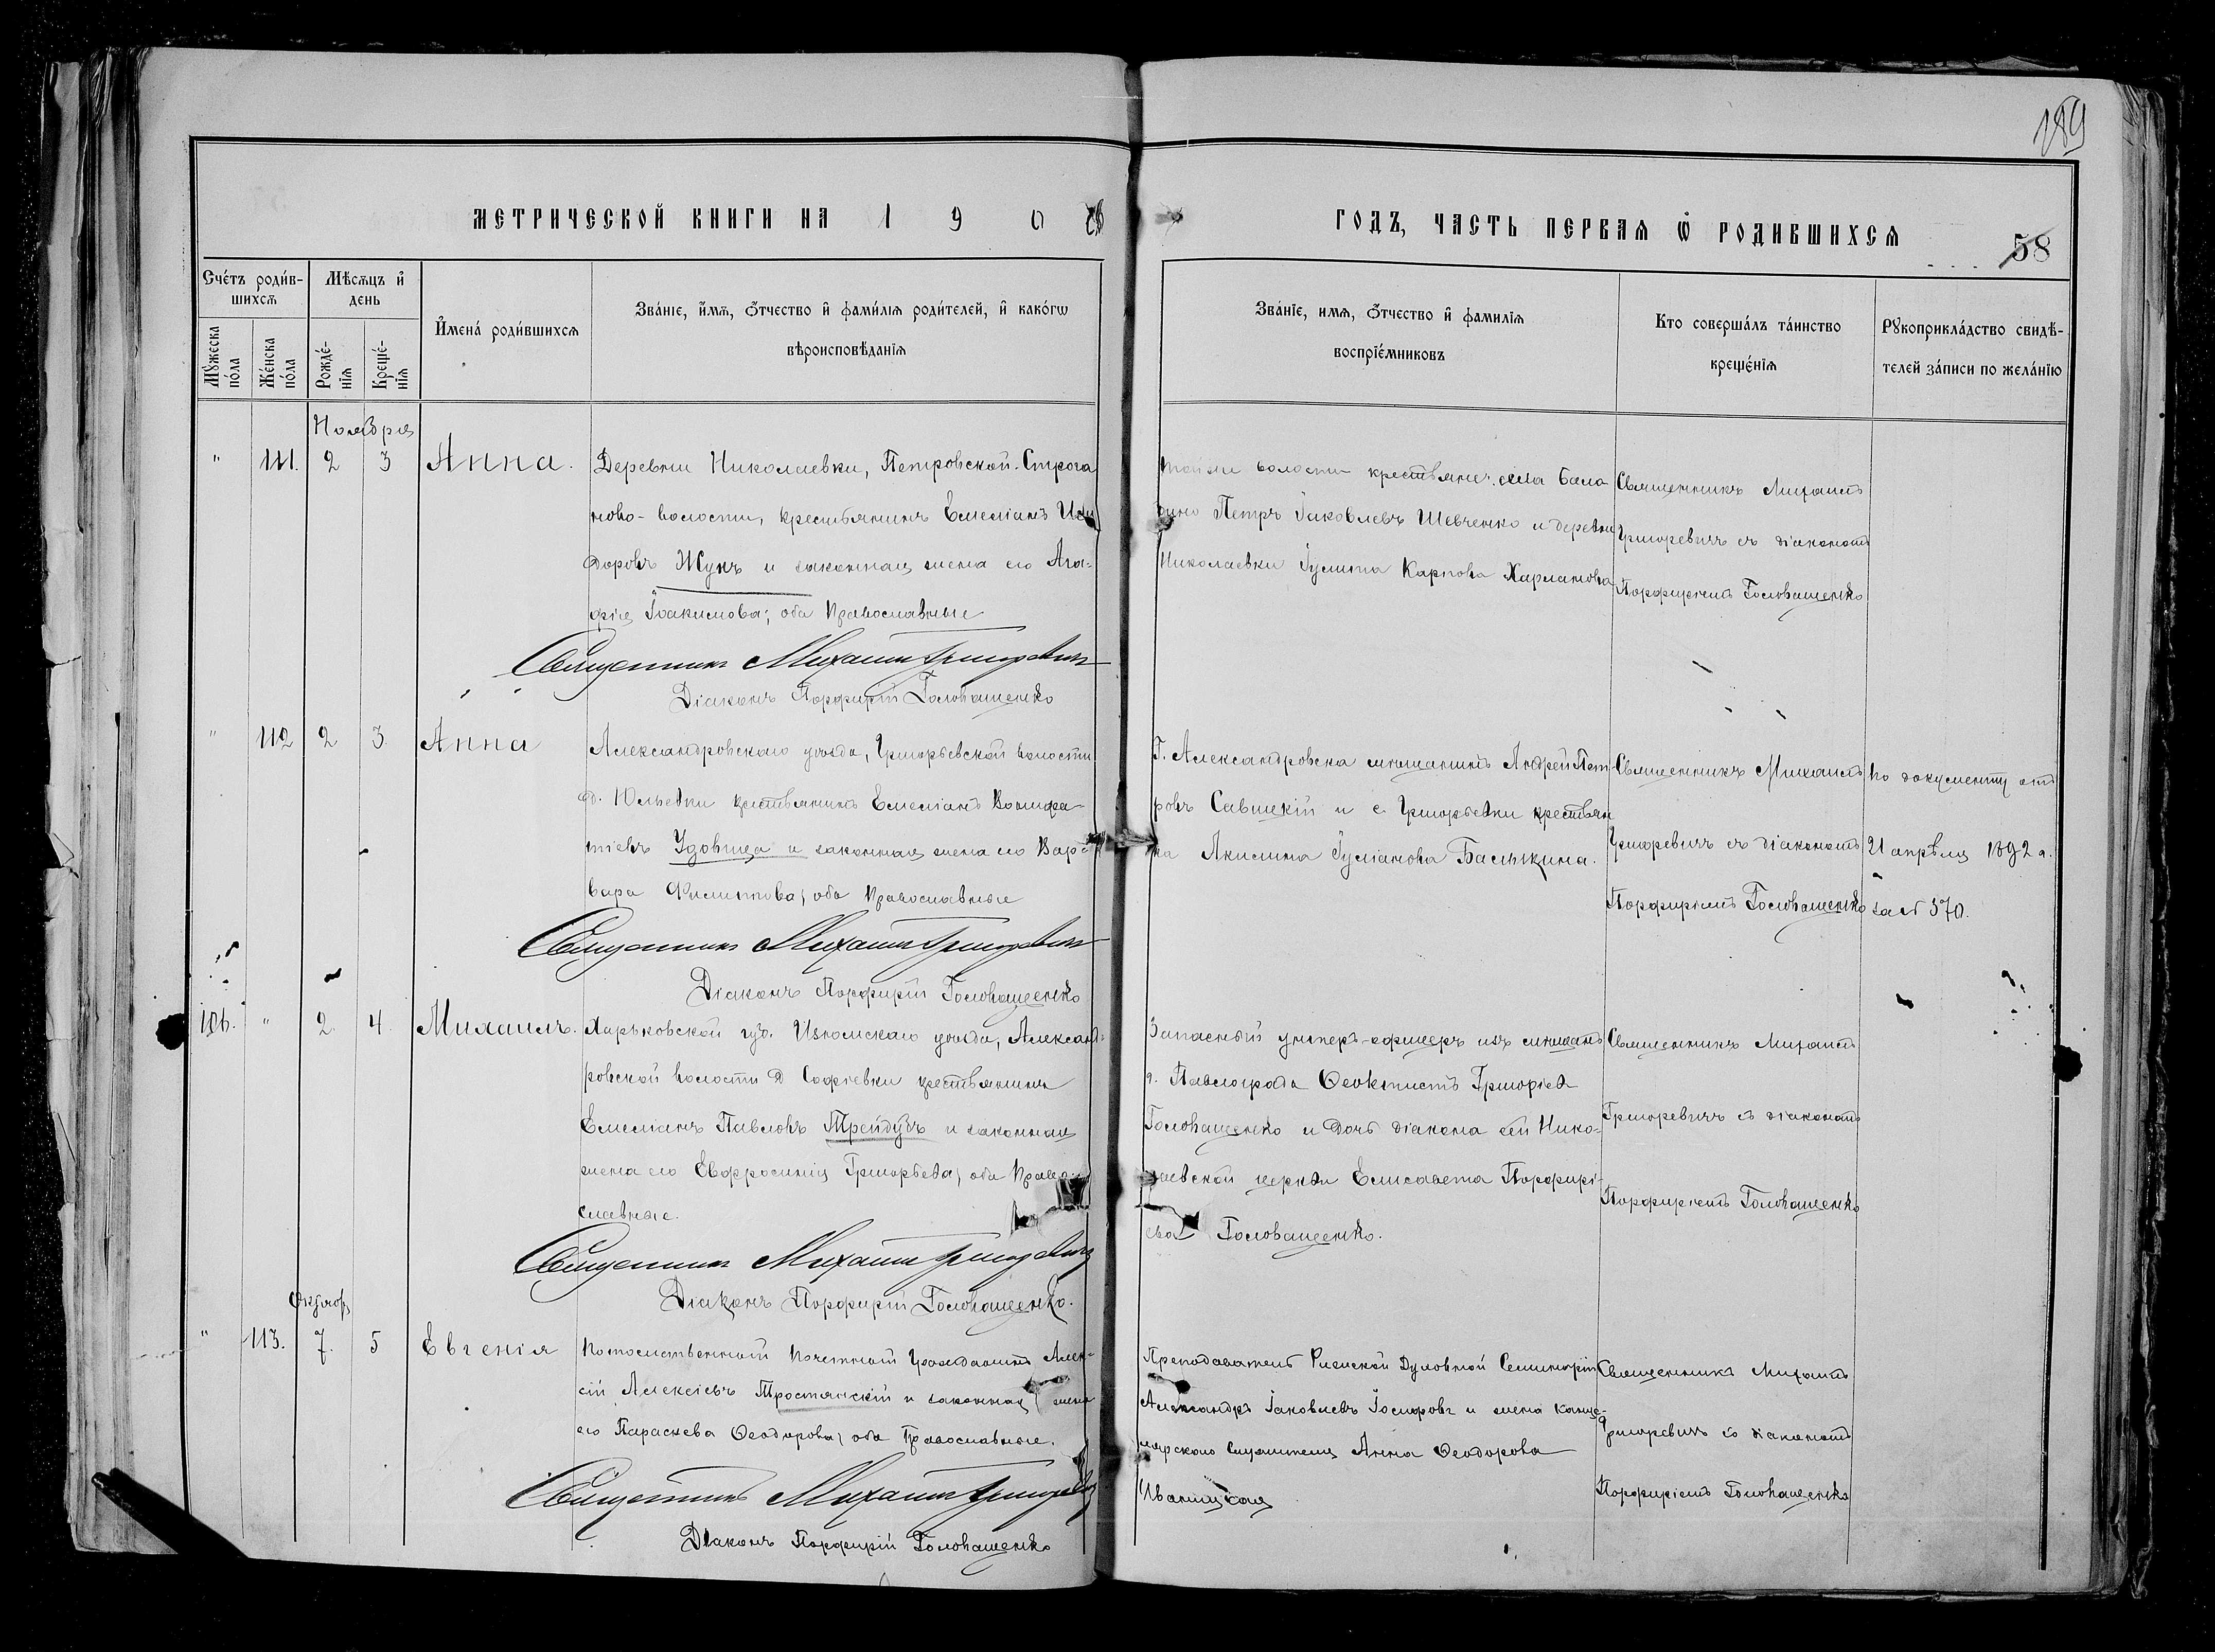 189
МЕТРИЧЕСКОЙ КНИГИ НА 1 9 0
ГОДЪ, ЧАСТЬ ПЕРВАЯ Ѡ РОДИВШИХСЯ
58
Счетъ родив-
шихся
Мѣсяцъ и
день
Имена родившихся
Званіе, имя, отчество и фамилія родителей, и какогѡ
вѣроисповѣданія
Званіе, имя, отчество и фамилія
воспріемниковъ
Кто совершалъ таинство
крещенія
Рукоприкладство свидѣ-
телей записи по желанію
Мужеска
пола
Женска
пола
Рожде-
нія
Креще-
нія
Ноября
" 111. 2 3 Анна.
Деревни Николаевки, Петровской-Строга
ново-волости, крестьянинъ Емеліанъ Иси
доровъ Жукъ и законная жена его Ага-
фія Іоакимова; оба Православные
Священникъ Михаилъ Григоревичъ
Діаконъ Порфирій Головащенко
волости крестьянин. села Бала
Петръ Іаковлевъ Шевченко и деревни
Николаевки Іулита Карпова Харланова
Священникъ Михаилъ
Григоревичъ съ діакономъ
Порфиріемъ Головащенко
" 112 2 3. Анна
Александровскаго уѣзда, Григорьевской волости
д. Юльевки крестьянинъ Емеліанъ Вонифа-
тіевъ Удовица и законная жена его Вар-
вара Филиппова, оба Православные
Священникъ Михаилъ Григоревичъ
Діаконъ Порфирій Головащенко
Г. Александровска мѣщанинъ Андрей Пет-
ровъ Савицкій и с. Григорьевки крестьян
ка Акилина Іуліанова Балыкина.
Священникъ Михаилъ
Григоревичъ съ діакономъ
Порфиріемъ Головащенко
по документу отъ
21 апрѣля 1892 г.
за № 370.
106. " 2. 4. Михаилъ.
Харьковской губ. Изюмскаго уѣзда, Александ-
ровской волости д Софіевки крестьянинъ
Емеліанъ Павловъ Трейдубъ и законная
жена его Евфросинія Григорьева, оба Право
славные.
Священникъ Михаилъ Григоревичъ
Діаконъ Порфирій Головащенко.
Запасный унтеръ-офицеръ изъ мѣщанъ
г. Павлограда Ѳеоктистъ Григоріев
Головащенко и дочь діакона сей Нико-
лаевской церкви Елисавета Порфирі-
ева Головащенко.
Священникъ Михаилъ
Григоревичъ съ діакономъ
Порфиріемъ Головащенко
Октябр
" 113. 7. 5 Евгенія
Потомственный Почетный Гражданинъ Алек-
сій Алексіевъ Тростянскій и законная жена
его Параскева Ѳеодорова, оба Православные.
Священникъ Михаилъ Григоревичъ
Діаконъ Порфирій Головащенко
Преподаватель Рижской Духовной Семинаріи
Александръ Іаковлевъ Іосифовъ и жена канце-
лярскаго служителя Анна Ѳеодорова
Иваницкая
Священникъ Михаилъ
Григоревичъ съ діакономъ
Порфиріемъ Головащенко